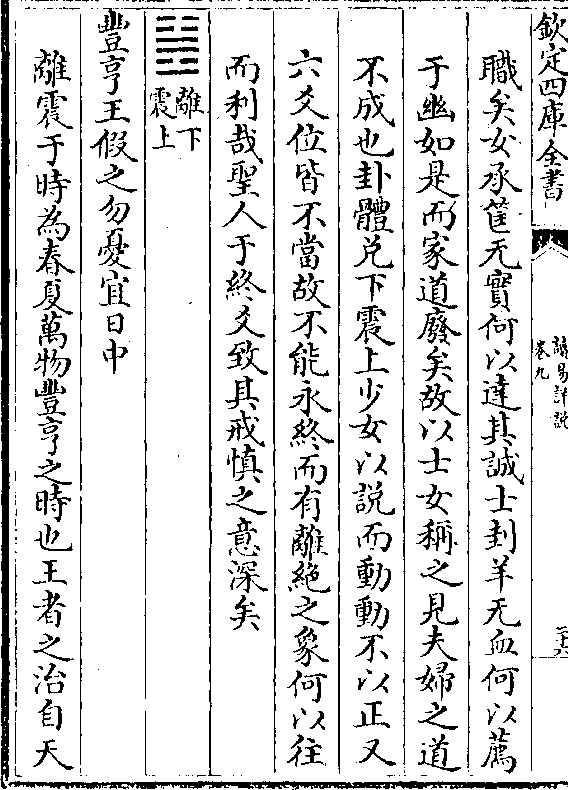 欽定四庫全書
讀易詳說
卷九
職矣女承筐无實何以達其誠士刲羊无血何以薦
于幽如是而家道廢矣故以士女稱之見夫婦之道
不成也卦體兌下震上少女以説而動動不以正又
六爻位皆不當故不能永終而有離絶之象何以往
而利哉聖人于終爻致其戒慎之意深矣
䷶
離下
震上
豐亨王假之勿憂宜日中
離震于時為春夏萬物豐亨之時也王者之治自天